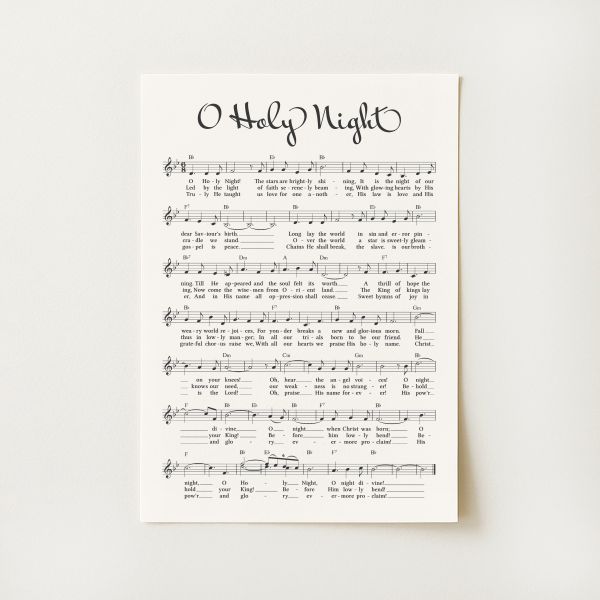 O Holy Night
B♭ E♭ B♭
O Ho - ly Night! The stars are bright-ly shi - ning, It is the night of our
Led by the light of faith se - rene - ly beam - ing, With glow-ing hearts by His
Tru - ly He taught us love for one a - noth - er, His law is love and His
F7 B♭ B♭ E♭
dear Sav-iour's birth Long lay the world in sin and er-ror pin -
cra-dle we stand O - ver the world a star is sweet-ly gleam -
gos-pel is peace. Chains He shall break, the slave. is our broth -
Dm A Dm F7
ning. Till He ap-peared and the soul felt its worth. A thrill of hope the
ing, Now come the wise-men from O - ri - ent land. The King of kings lay
er, And in His name all op-pres-sion shall cease. Sweet hymns of joy in
B♭ F7 B♭
wea-ry world re-joi-ces, For yon-der breaks a new and glo-rious morn. Fall
thus in low-ly man-ger; In all our tri-als born to be our friend. He
grate-ful chor-us raise we, With all our hearts we praise His ho-ly name. Christ
Dm Cm Gm B♭
on your knees! Oh, hear the an-gel voi-ces! O night
knows our need, our weak-ness is no stran-ger! Be-hold
is the Lord! Oh, praise His name for-ev-er! His pow'r
F B♭ E♭ B♭ F7 B♭
di-vine, O night when Christ was born; O
your King! Be-fore him low-ly bend! Be-
and glo-ry ev-er-more pro-claim! His
F B♭ E♭ B♭ F7 B♭
night, O Ho-ly Night, O night di-vine!
hold your King! Be-fore Him low-ly bend!
pow'r and glo-ry ev-er-more pro-claim!